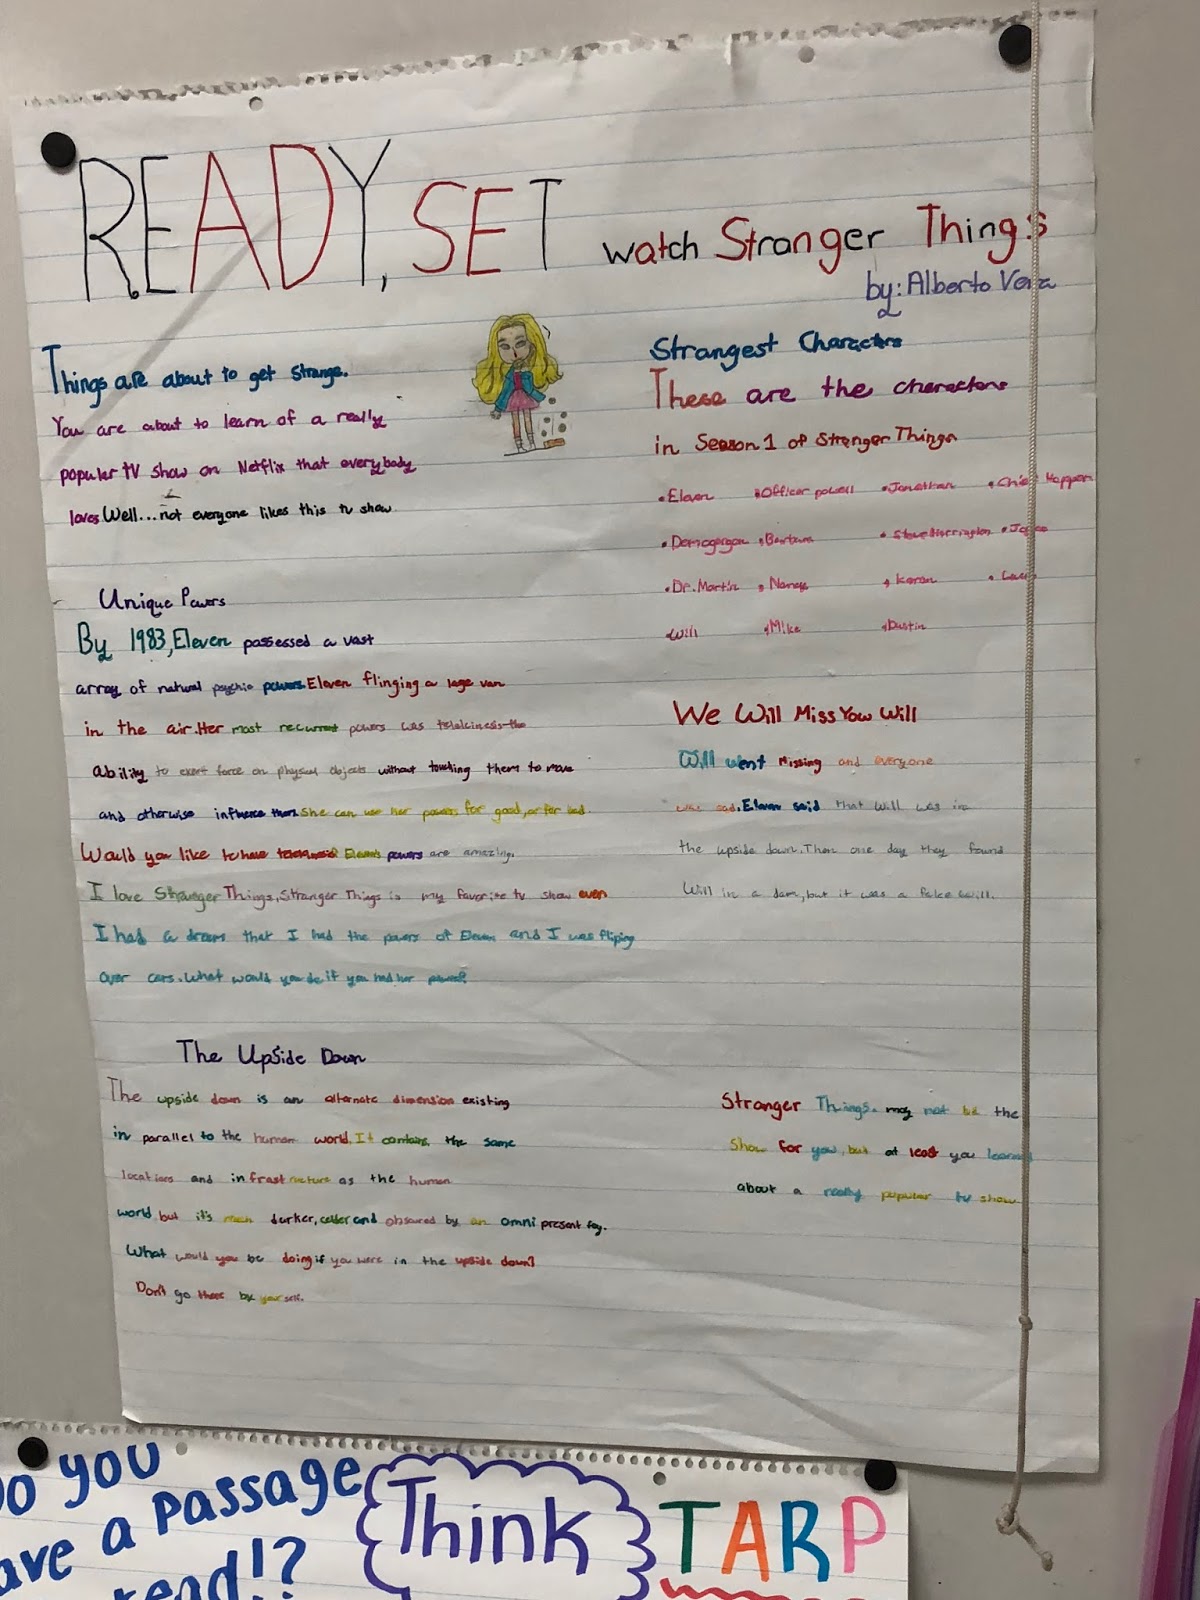 READY, SET watch Stranger Things
by: Alberto Vera
Things are about to get strange.
You are about to learn of a really
popular TV show on Netflix that everybody
loves Well... not everyone likes this tv show
Unique Powers
By 1983, Eleven possessed a vast
array of natural psychic powers. Eleven flinging a lage van
in the air. Her most recurrent powers was telekinesis-the
ability to exert force on physical objects without touching them to move
and otherwise influence them. She can use her powers for good, or for bad.
Would you like to have Eleven's powers are amazing.
I love Stranger Things, Stranger Things is my favorite tv show even
I had a dream that I had the powers of Eleven and I was fliping
over cars. What would you do if you had her power?
The Upside Down
The upside down is an alternate dimension existing
in parallel to the human world. It contains the same
locations and infrastructure as the human
world but it's much darker, colder and obscured by an omni present fog.
What would you be doing if you were in the upside down?
Don't go there by yourself.
Strangest Characters
These are the characters
in Season 1 of Stranger Things
•Eleven •Officer powell •Jonathan •Chief Hopper
•Demogorgon •Barbara •Steve Harrington
•Dr. Martin •Nancy •Karen
•Will •Mike •Dustin
We Will Miss You Will
Will went Missing and everyone
was sad. Eleven said that Will was in
the upside down. Then one day they found
Will in a dam, but it was a fake will.
Stranger Things. may not be the
Show for you, but at least you learned
about a really popular tv show
Do you
have a passage
read!?
Think
TARP